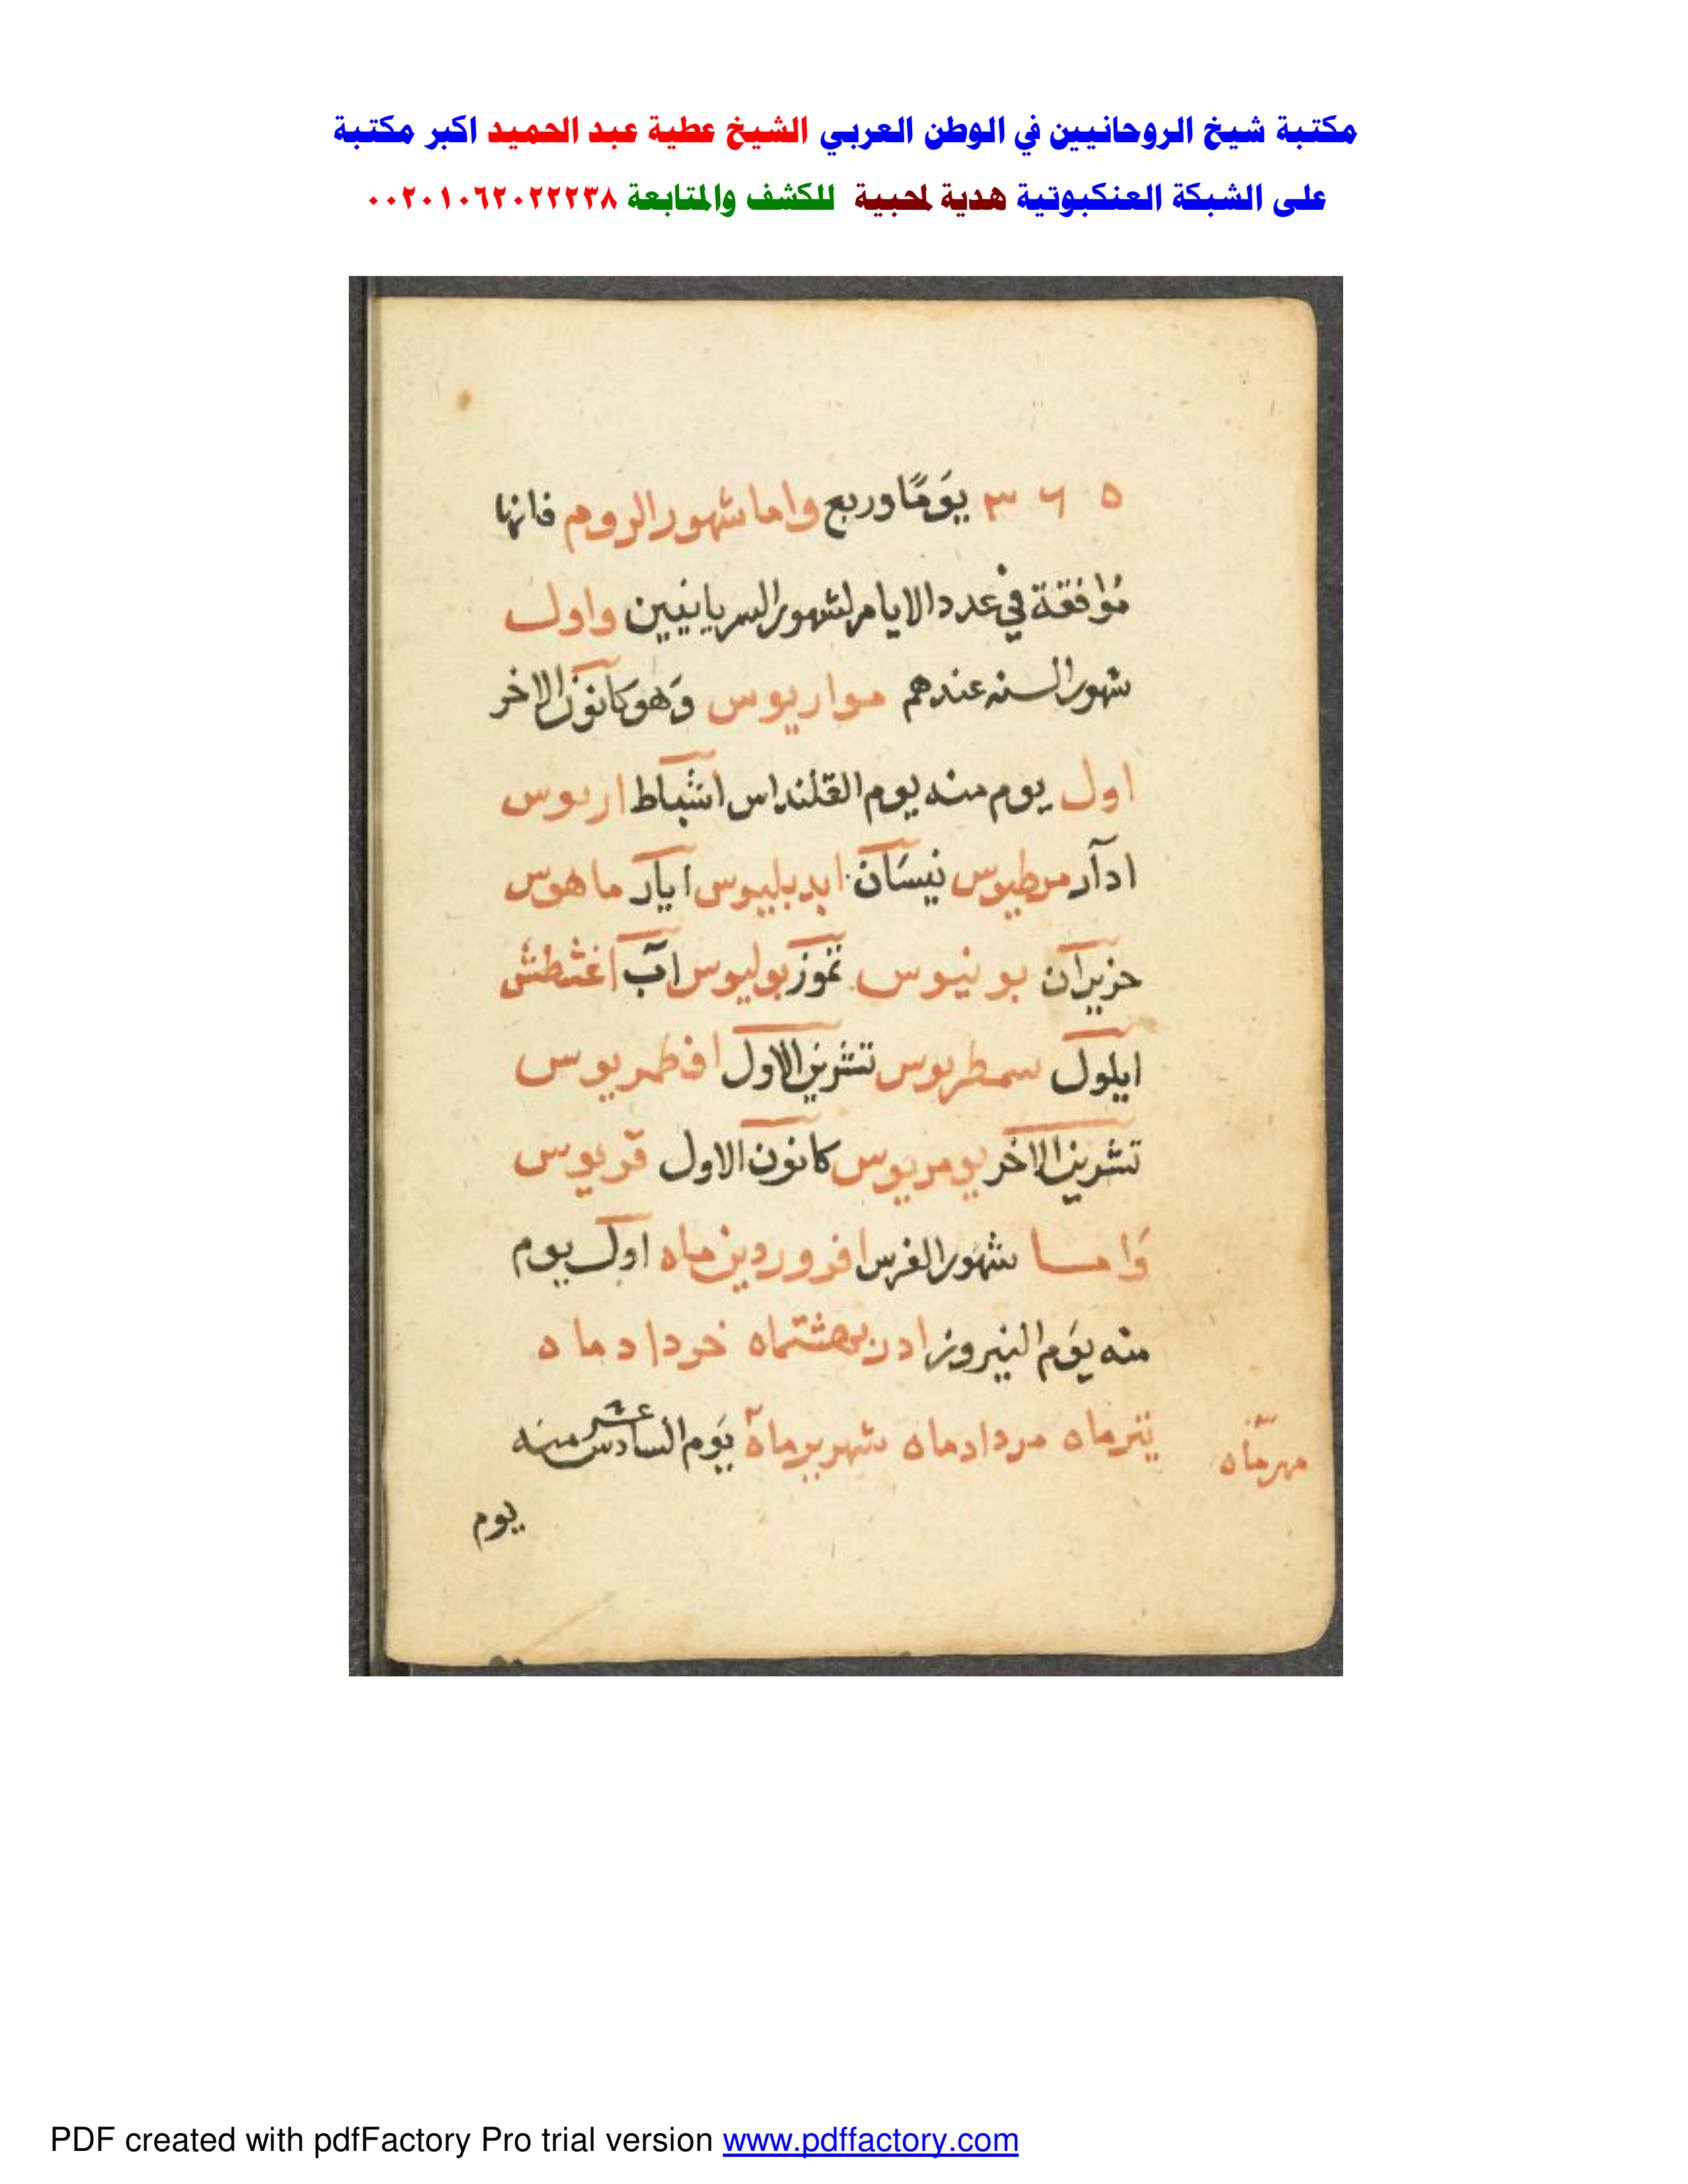 مكتبة شيخ الروحانيين في الوطن العربي الشيخ عطية عبد الحميد اكبر مكتبة
على الشبكة العنكبوتية هدية لمحبية للكشف والمتابعة ٠٠٢٠١٠٦٢٠٢٢٢٣٨
٥ ٦ ٣ يَومًا وربع واما شهور الروم فانها
مُوافقة في عدد الايام لشهور السريانيين واول
شهور السنه عندهم مواريوس وَهو كانون الاخر
اول يوم منه يوم القلنداس اشباط اربوس
ادآر مرطيوس نيسَان ابدبليوس ايار ماهوس
حزيران بونيوس تموز بوليوس آب اغشطش
ايلول سمطربوس تشرين الاول افطمربوس
تشرين الاخر يومربوس كانون الاول قربوس
وَامـا شهور الفرس افروردين ماه اول يوم
منه يَوم النيروز ادربهشتماه خرداد ماه
تيرماه مردادماه شهريرماه يَوم السادس عشر منه
مهرماه
يوم
PDF created with pdfFactory Pro trial version www.pdffactory.com